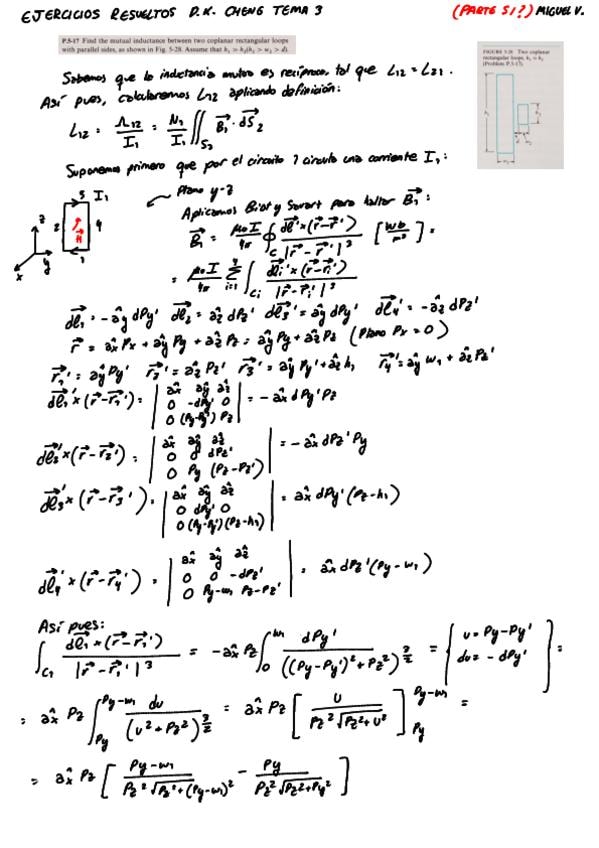 EJERCICIOS RESUELTOS D.K. CHENG TEMA 3 (PARTE 51?) MIGUEL V.
P.5-17 Find the mutual inductance between two coplanar rectangular loops
with parallel sides, as shown in Fig. 5-28. Assume that h₁ > h₂(h₂ > w₂ > d).
FIGURE 5-28 Two coplanar
rectangular loops, h₁ > h₂
(Problem P.5-17).
Sabemos que la inductancia mutua es recíproca, tal que L12 = L21.
Así pues, calcularemos L12 aplicando definición:
L12 = Λ12/I1 = N2/I1 ∬S2 B1⃗ · dS⃗2
Suponemos primero que por el circuito 1 circula una corriente I1:
Plano y-z
Aplicamos Biot y Savart para hallar B1⃗:
B1⃗ = μ0 I/4π ∮C dl⃗'×(r⃗-r⃗')/|r⃗-r⃗'|³ [Wb/m²] =
= μ0 I/4π Σ(i=1→4) ∫Ci dl⃗i'×(r⃗-r⃗i')/|r⃗-r⃗i'|³
3 I1
2 4
1
z
y
x
dl⃗1' = -ây dPy' dl⃗2' = âz dPz' dl⃗3' = ây dPy' dl⃗4' = -âz dPz'
r⃗ = âx Px + ây Py + âz Pz = ây Py + âz Pz (Plano Px = 0)
r⃗1' = ây Py' r⃗2' = âz Pz' r⃗3' = ây Py' + âz h1 r⃗4' = ây w1 + âz Pz'
dl⃗1'×(r⃗-r⃗1') = | âx ây âz ; 0 -dPy' 0 ; 0 (Py-Py') Pz | = -âx dPy' Pz
dl⃗2'×(r⃗-r⃗2') = | âx ây âz ; 0 0 dPz' ; 0 Py (Pz-Pz') | = -âx dPz' Py
dl⃗3'×(r⃗-r⃗3') = | âx ây âz ; 0 dPy' 0 ; 0 (Py-Py') (Pz-h1) | = âx dPy' (Pz-h1)
dl⃗4'×(r⃗-r⃗4') = | âx ây âz ; 0 0 -dPz' ; 0 Py-w1 Pz-Pz' | = âx dPz' (Py-w1)
Así pues:
∫C1 dl⃗1'×(r⃗-r⃗1')/|r⃗-r⃗1'|³ = -âx Pz ∫0^w1 dPy'/((Py-Py')²+Pz²)^(3/2) = { u = Py-Py' ; du = -dPy' } =
= âx Pz ∫Py^(Py-w1) du/(u²+Pz²)^(3/2) = âx Pz [ u/(Pz²√(Pz²+u²)) ]Py^(Py-w1) =
= âx Pz [ (Py-w1)/(Pz²√(Pz²+(Py-w1)²)) - Py/(Pz²√(Pz²+Py²)) ]